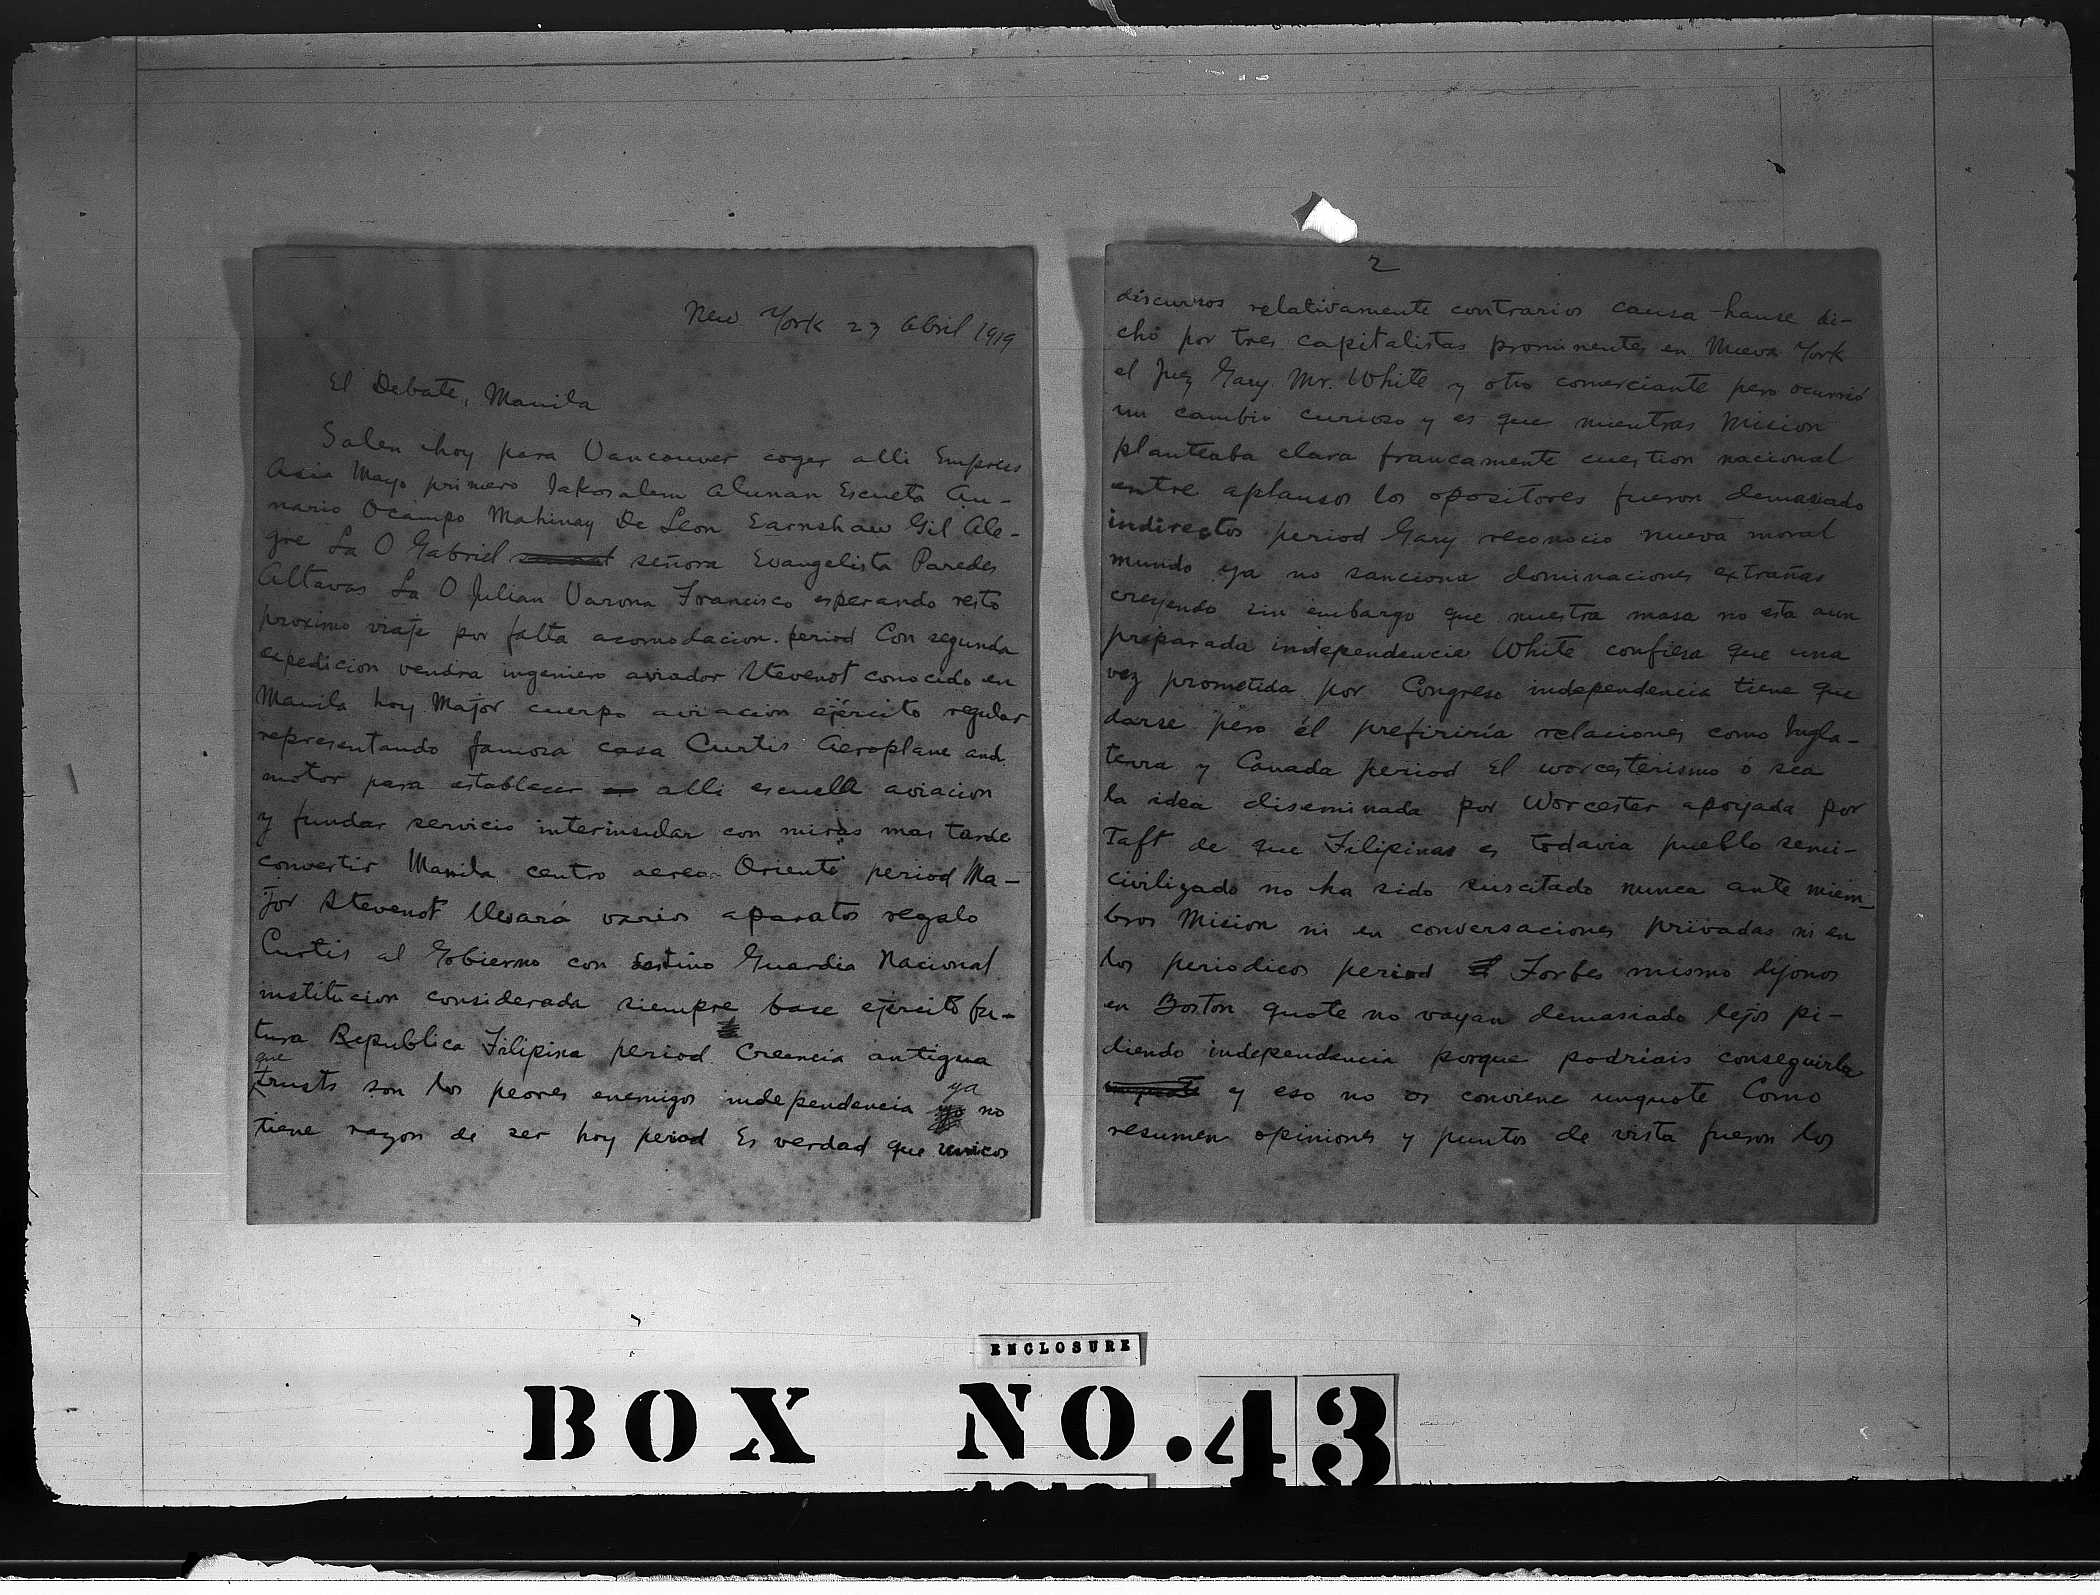 New York 23 Abril 1919
El Debate, Manila
Salen hoy para Vancouver coger alli Empress
Asia Mayo primero Jakosalem Alunan Escueta Au-
nario Ocampo Mahinay De Leon Earnshaw Gil Ale-
gre La O Gabriel señora Evangelista Paredes
Altavas La O Julian Varona Francisco esperando resto
proximo viaje por falta acomodacion. period Con segunda
expedicion vendra ingeniero aviador Stevenot conocido en
Manila hoy Major cuerpo aviacion ejército regular
representando famosa casa Curtis Aeroplane and
motor para establecer alli escuela aviacion
y fundar servicio interinsular con miras mas tarde
convertir Manila centro aereo Oriente period Ma-
jor Stevenot llevará varios aparatos regalo
Curtis al Gobierno con destino Guardia Nacional
institucion considerada siempre base ejército fu-
tura Republica Filipina period Creencia antigua
que
trusts son los peores enemigos independencia ya no
tiene razon de ser hoy period Es verdad que unicos
2
discursos relativamente contrarios causa hanse di-
cho por tres capitalistas prominentes en Nueva York
el Juez Gary Mr. White y otro comerciante pero ocurrió
un cambio curioso y es que mientras Mision
planteaba clara francamente cuestion nacional
entre aplausos los opositores fueron demasiado
indirectos period Gary reconocio nueva moral
mundo ya no sanciona dominaciones extrañas
creyendo sin embargo que nuestra masa no esta aun
preparada independencia White confiesa que una
vez prometida por Congreso independencia tiene que
darse pero él prefiriría relaciones como Ingla-
terra y Canada period El worcesterismo ó sea
la idea diseminada por Worcester apoyada por
Taft de que Filipinas es todavia pueblo semi-
civilizado no ha sido suscitado nunca ante miem-
bros Mision ni en conversaciones privadas ni en
los periodicos period Forbes mismo dijonos
en Boston quote no vayan demasiado lejos pi-
diendo independencia porque podriais conseguirla
y eso no os conviene unquote Como
resumen opiniones y puntos de vista fueron los
ENCLOSURE
BOX NO. 43